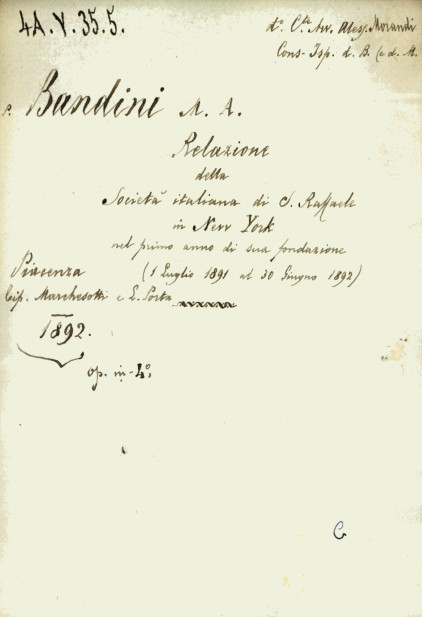 4A.V.35.5.
d.° C.te Avv. Aless. Morandi
Cons- Isp. d. B. C e d. M.
P. Bandini M. A.
Relazione
della
Società italiana di S. Raffaele
in New York
nel primo anno di sua fondazione
(1 Luglio 1891 al 30 Giugno 1892)
Piacenza
Tip. Marchesotti e L. Porta
1892.
op. in-4°,
G